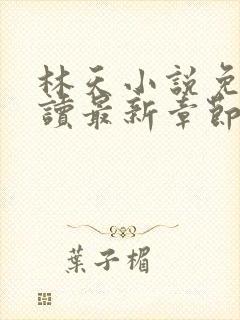 林天小說免
讀最新章節
葉子楣